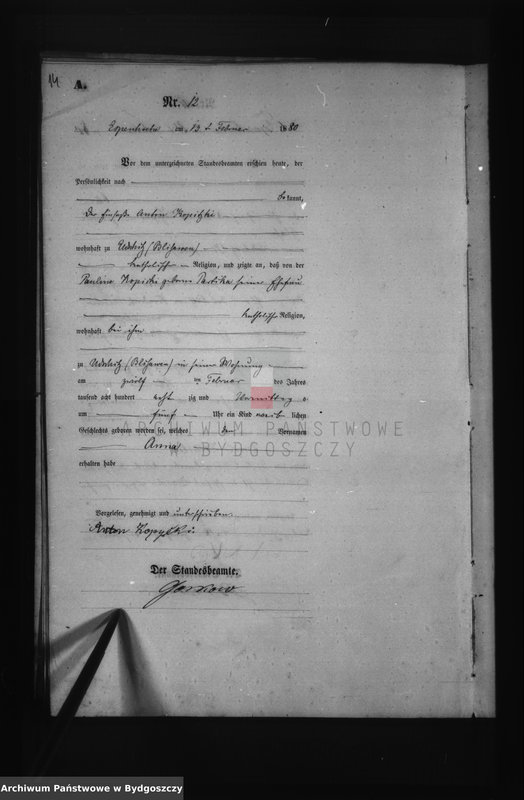 14
A.
Nr. 12
am 13 ten Februar 1880
Vor dem unterzeichneten Standesbeamten erschien heute, der
Persönlichkeit nach
bekannt,
Der Anton Kopitzki
wohnhaft zu (Blisawen)
katholischer Religion, und zeigte an, daß von der
Pauline Kopitzki geborne seiner Ehefrau
katholischer Religion,
wohnhaft bei ihm
zu (Blisawen) in seiner Wohnung
am zwölf ten Februar des Jahres
tausend acht hundert acht zig und Vormittags
um fünf Uhr ein Kind weib lichen
Geschlechts geboren worden sei, welches den Vornamen
Anna
erhalten habe
Vorgelesen, genehmigt und unterschrieben
Anton
Der Standesbeamte.
ARCHIWUM PAŃSTWOWE
W BYDGOSZCZY
Archiwum Państwowe w Bydgoszczy